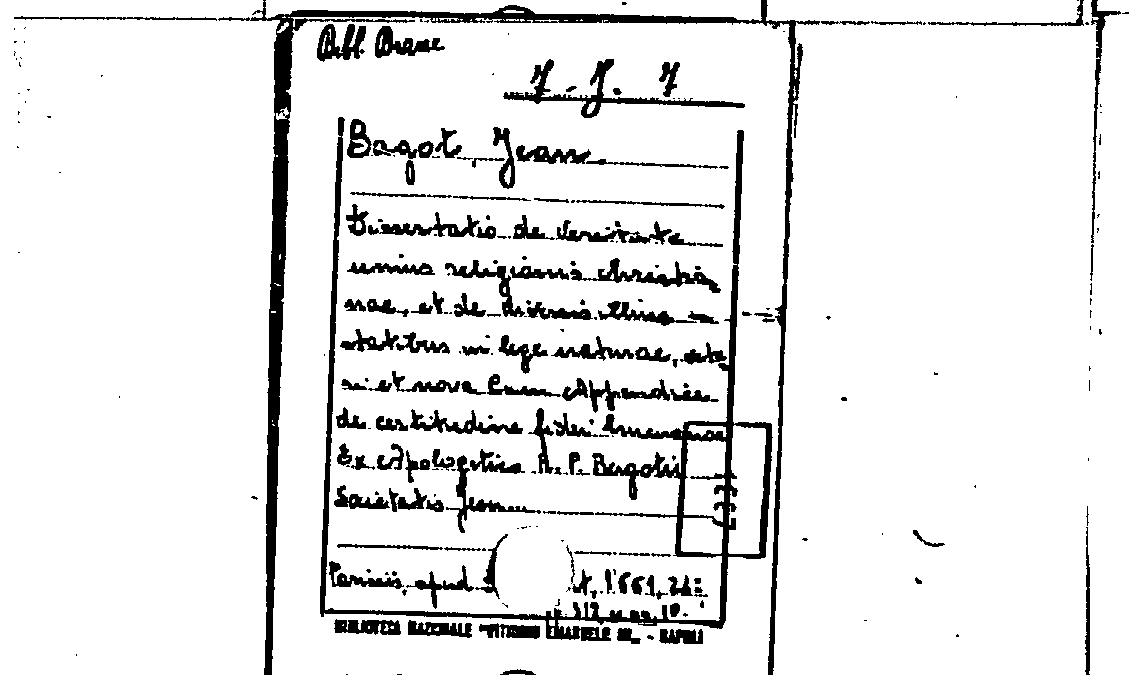 Bibl. Branc
7. J. 7
Bagot, Jean.
Dissertatio de Veritate
unius religionis christia
nae, et de diversis illius
statibus in lege naturae, vete
ri et nova Cum Appendice
de certitudine fidei humanae
Ex Apologetico R. P. Bagotii
Societatis Jesu
Parisiis, apud t, 1661, 24:
312 10.
BIBLIOTECA NAZIONALE "VITTORIO EMANUELE III" - NAPOLI